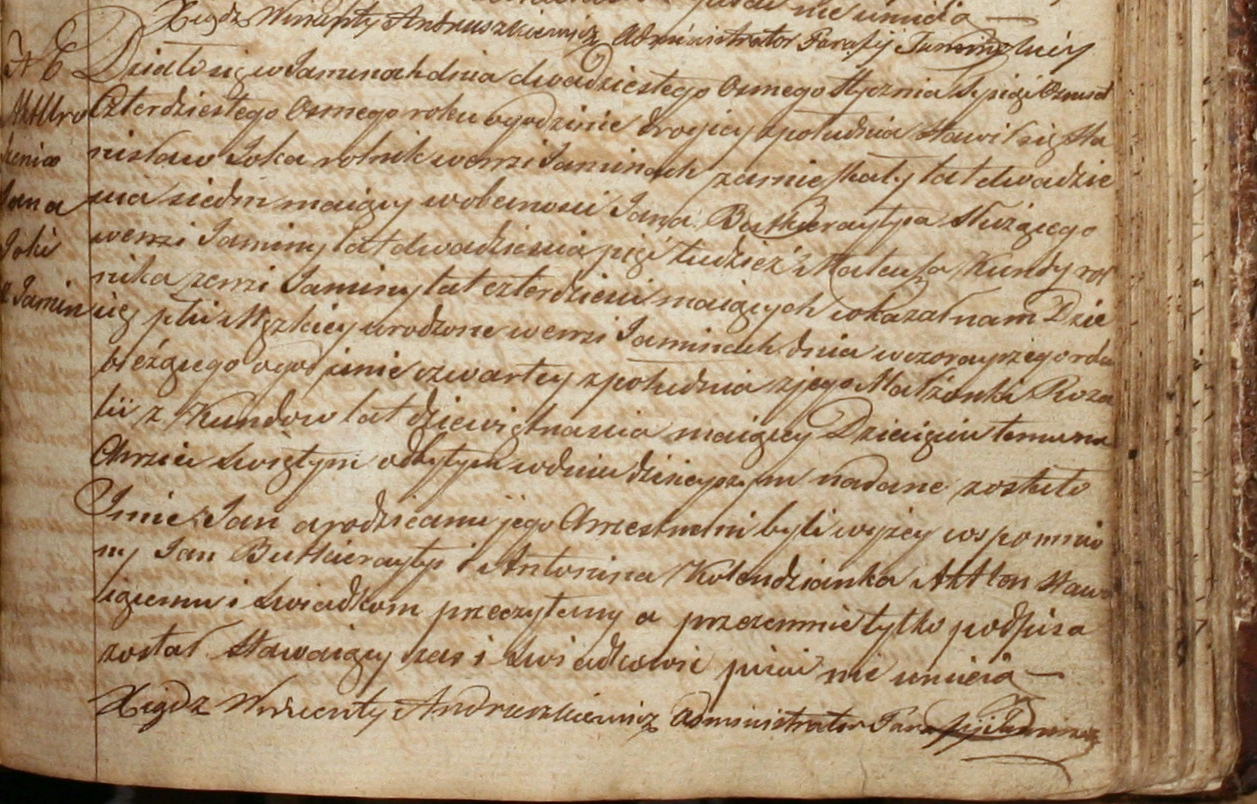 pisać nie umieią
Xiądz Wincenty Andruszkiewicz Administrator Parafij
Działo się w Jaminach dnia dwudziestego Osmego Stycznia Tysiąc Osmset
Czterdziestego Osmego roku o godzinie drugiey z południa stawił się Sta
nisław Joka rolnik we wsi Jaminach zamieszkały lat dwadzie
scia siedm maiący w obecnosci Jana służącego
we wsi Jaminy lat dwadziescia pięć tudzież Mateusza Kundy rol
nika ze wsi Jaminy lat czterdziesci maiących i okazał nam Dzie
cię płci Męzkiey urodzone we wsi Jaminach dnia wczorayszego roku
bieżącego o godzinie czwartey z południa z jego Małżonki Roza
lii z Kundow lat dziewiętnascia maiącey Dziecięciu temu na
Chrzcie Swiętym odbytym w dniu dzisieyszym nadane zostało
Imie Jan a rodzicami jego Chrzestnemi byli wyżey wspomnio
ny Jan i Antonina Akt ten stawa
iącemu i Swiadkom przeczytany a przezemnie tylko podpisa
został Stawaiący zas i Swiadkowie pisać nie umieią
Xiądz Wincenty Andruszkiewicz Administrator Parafiji
Jana
Joki
z Jamin